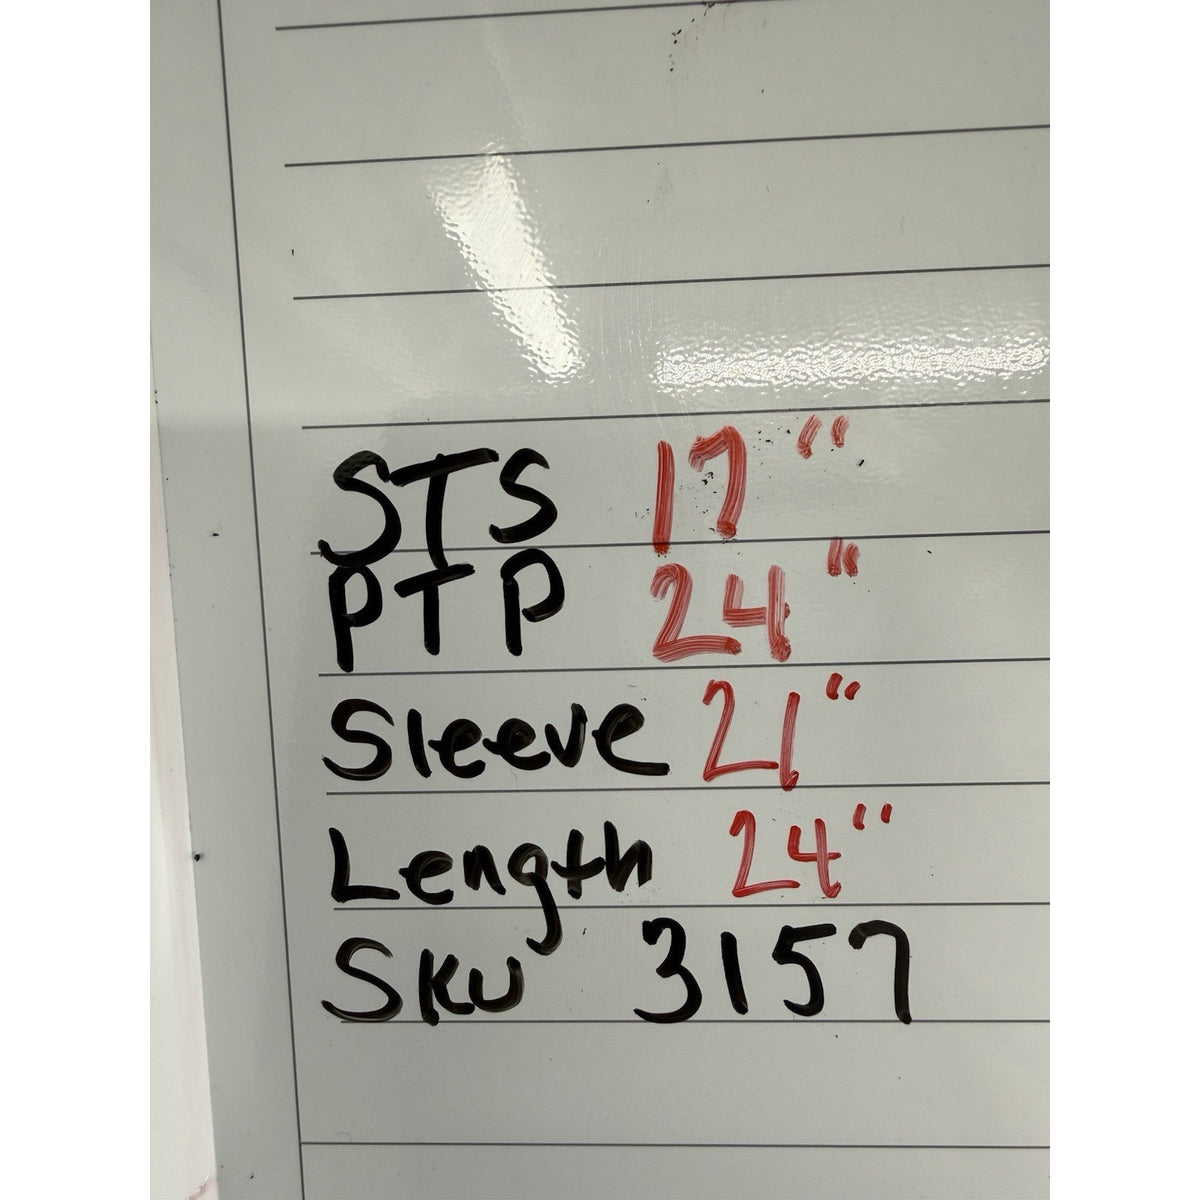 STS 17"
PTP 24"
Sleeve 21"
Length 24"
SKU 3157